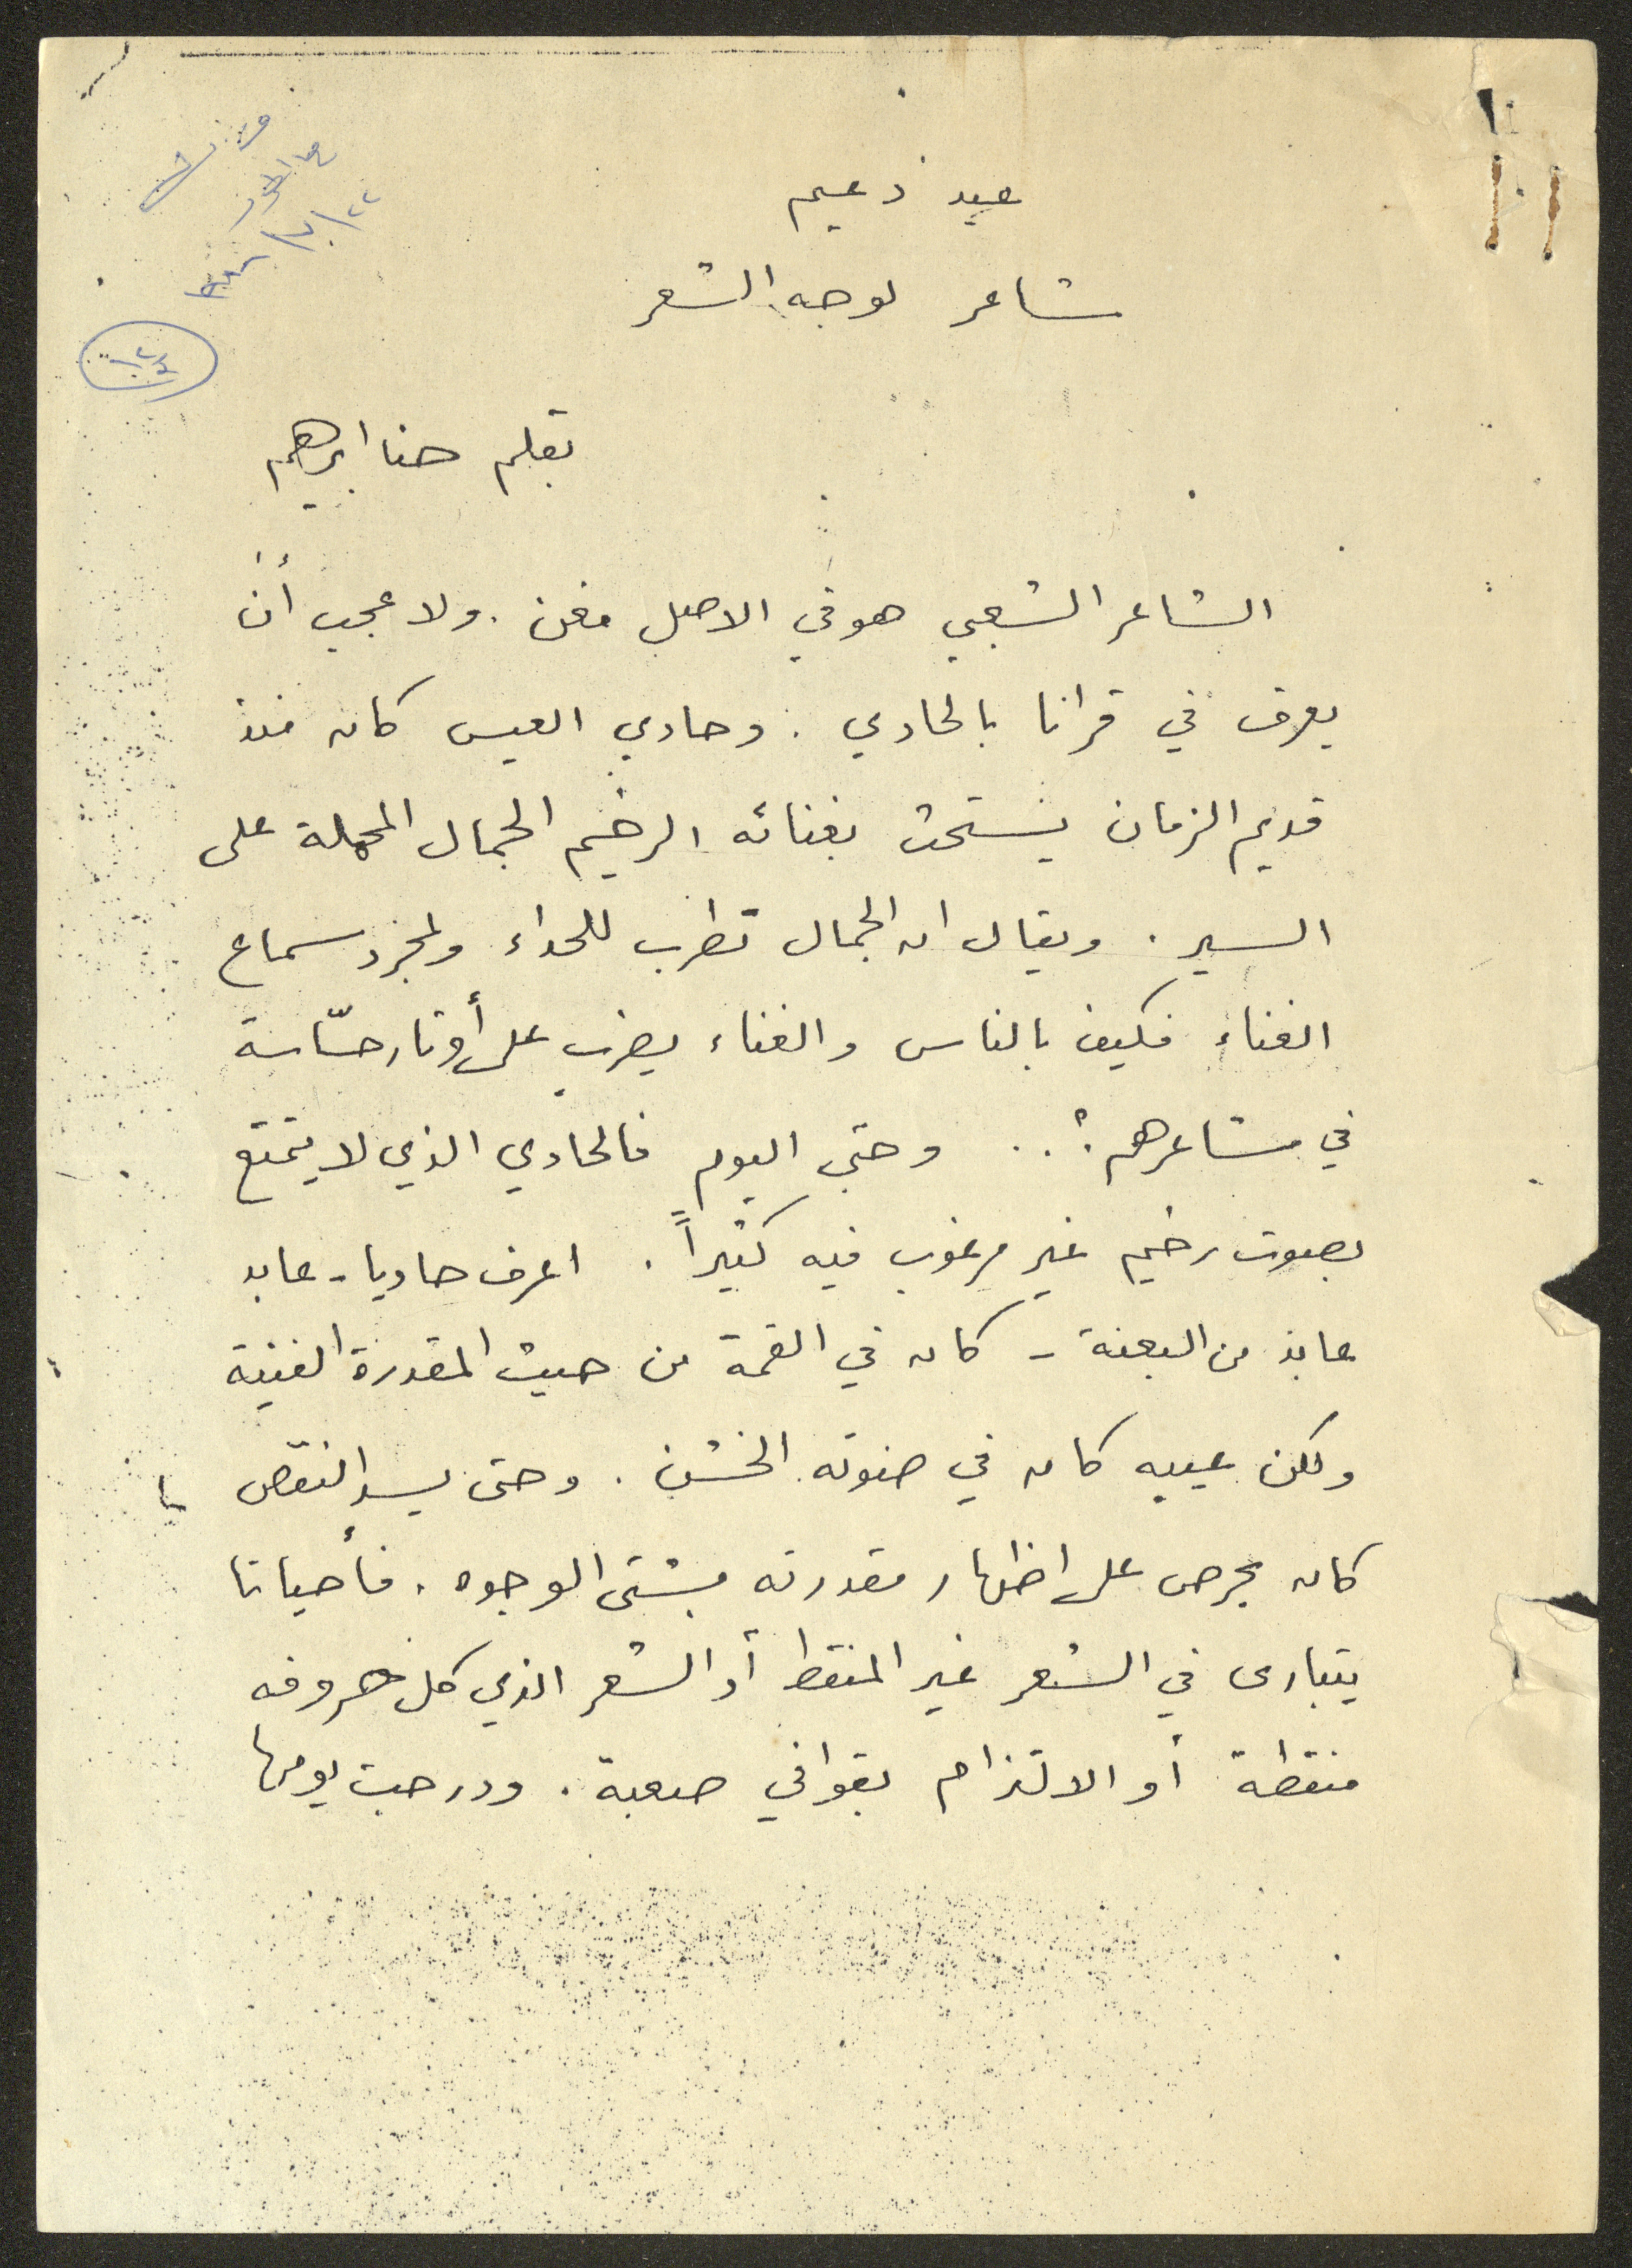 عيد زعيم
شاعر لوجه الشعر
بقلم حنا ابرهيم
الشاعر الشعبي هو في الاصل مغن . ولا عجب أن
يعرف في قرانا بالحادي . وحادي العيس كان منذ
قديم الزمان يستحث بغنائه الرخيم الجمال المحملة على
السير . ويقال ان الجمال تطرب للحداء ولمجرد سماع
الغناء فكيف بالناس والغناء يضرب على أوتار حسّاسة
في مشاعرهم ؟ .. وحتى اليوم فالحادي الذي لا يتمتع
بصوت رخيم غير مرغوب فيه كثيراً . اعرف حاديا - عابد
عابد من البعنة - كان في القمة من حيث المقدرة الفنية
ولكن عيبه كان في صوته الخشن . وحتى يسد النقص
كان يحرص على اظهار مقدرته بشتى الوجوه . فأحيانا
يتبارى في الشعر غير المنقط أو الشعر الذي كل حروفه
منقطة أو الالتزام بقوافي صعبة . ودرجت يومها